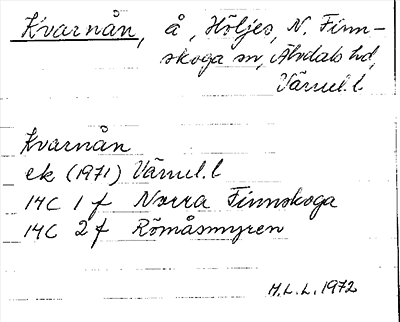 Kvarnån, å, Höljes, N. Finn-
skoga sn, Älvdals hd,
Värml. l
Kvarnån
ek (1971) Värml. l
14C 1 f Norra Finnskoga
14C 2 f Römåsmyren
H.L.L. 1972